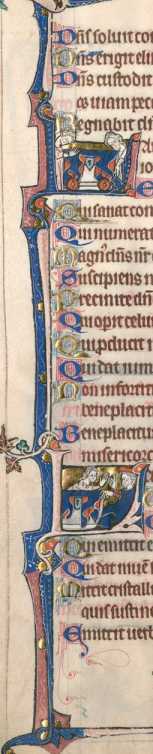 Dn̄s soluit con
Dn̄s erigit eli
Dn̄s custodit
os uiam pecc
Regnabit dn̄
Qui sanat con
Qui numerat
Magn' dn̄s nr̄
Suscipiens m
Precinite dn̄
Qui operit celu
Qui producit i
Qui dat ium
Non in fortit
beneplacit
Beneplacitu
misericord
Qui emittit e
Qui dat niue
Mittit cristallu
quis sustine
Emittet uerb